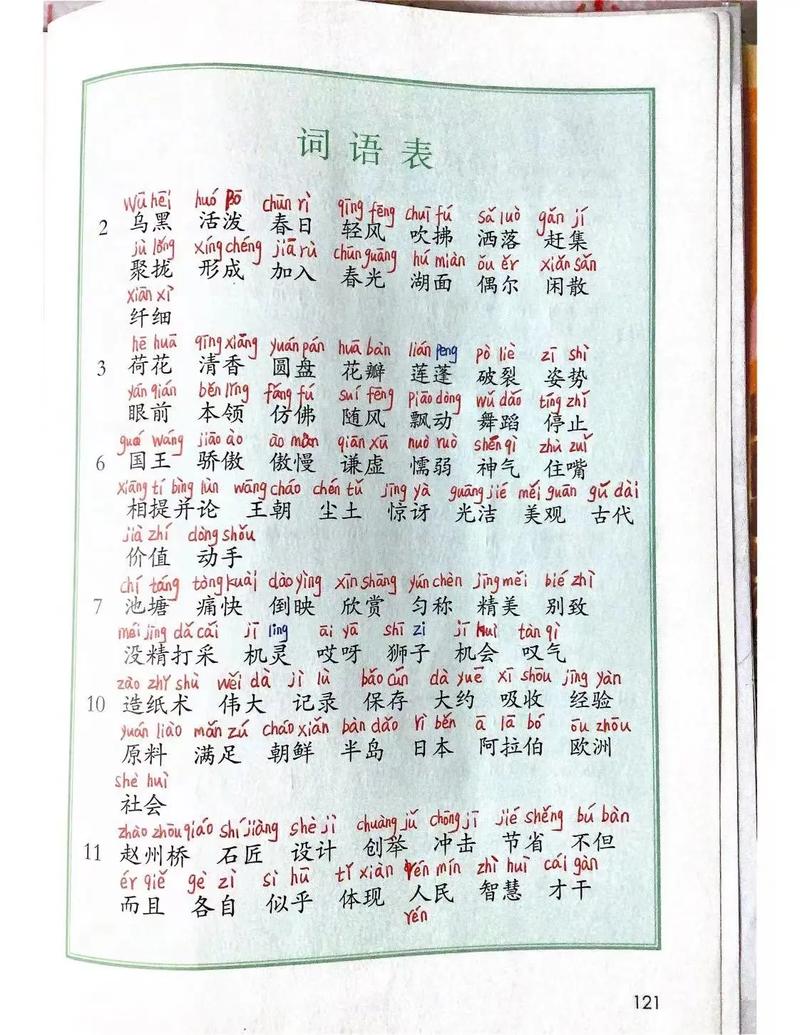 词语表
wū hēi huó pō chūn rì qīng fēng chuī fú sǎ luò gǎn jí
2 乌黑 活泼 春日 轻风 吹拂 洒落 赶集
jù lǒng xíng chéng jiā rù chūn guāng hú miàn ǒu ěr xián sǎn
聚拢 形成 加入 春光 湖面 偶尔 闲散
xiān xì
纤细
hē huā qīng xiāng yuán pán huā bàn lián peng pò liè zī shì
3 荷花 清香 圆盘 花瓣 莲蓬 破裂 姿势
yǎn qián běn lǐng fǎng fú suí fēng piāo dòng wǔ dǎo tíng zhǐ
眼前 本领 仿佛 随风 飘动 舞蹈 停止
guó wáng jiāo ào ào màn qiān xū nuò ruò shén qì zhù zuǐ
6 国王 骄傲 傲慢 谦虚 懦弱 神气 住嘴
xiāng tí bìng lùn wāng cháo chén tǔ jīng yà guāng jié měi guān gǔ dài
相提并论 王朝 尘土 惊讶 光洁 美观 古代
jià zhí dòng shǒu
价值 动手
chí táng tòng kuài dào yìng xīn shǎng yún chèn jīng měi bié zhì
7 池塘 痛快 倒映 欣赏 匀称 精美 别致
méi jīng dǎ cǎi jī ling āi yā shī zi jī huì tàn qì
没精打采 机灵 哎呀 狮子 机会 叹气
zào zhǐ shù wěi dà jì lù bǎo cún dà yuē xī shōu jīng yàn
10 造纸术 伟大 记录 保存 大约 吸收 经验
yuán liào mǎn zú cháo xiǎn bàn dǎo rì běn ā lā bó ōu zhōu
原料 满足 朝鲜 半岛 日本 阿拉伯 欧洲
shè huì
社会
zhào zhōu qiáo shí jiàng shè jì chuàng jǔ chōng jī jié shěng bú bàn
11 赵州桥 石匠 设计 创举 冲击 节省 不但
ér qiě gè zì sì hū tǐ xiàn rén mín zhì huì cái gàn
而且 各自 似乎 体现 人民 智慧 才干
rén
121